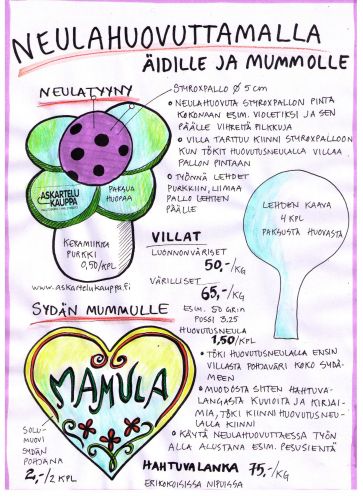 NEULAHUOVUTTAMALLA
ÄIDILLE JA MUMMOLLE
NEULATYYNY
STYROXPALLO Ø 5 cm
• NEULAHUOVUTA STYROXPALLON PINTA
KOKONAAN ESIM. VIOLETIKSI JA SEN
PÄÄLLE VIHREITÄ PILKKUJA
• VILLA TARTTUU KIINNI STYROXPALLOON
KUN TÖKIT HUOVUTUSNEULALLA VILLAA
PALLON PINTAAN
• TYÖNNÄ LEHDET
PURKKIIN, LIIMAA
PALLO LEHTIEN
PÄÄLLE
ASKARTELU
KAUPPA
PAKSUA
HUOPAA
KERAMIIKKA
PURKKI
0,50/KPL
www.askartelukauppa.fi
LEHDEN KAAVA
4 KPL
PAKSUSTA HUOVASTA
VILLAT
LUONNONVÄRISET
50,-/KG
VÄRILLISET
65,-/KG
ESIM. 50 GR:N
PUSSI 3.25
HUOVUTUSNEULA
1,50/KPL
SYDÄN MUMMULLE
MAMULA
SOLU-
MUOVI
SYDÄN
POHJANA
2,-/2 KPL
• TÖKI HUOVUTUSNEULALLA ENSIN
VILLASTA POHJAVÄRI KOKO SYDÄ-
MEEN
• MUODOSTA SITTEN HAHTUVA-
LANGASTA KUVIOITA JA KIRJAI-
MIA, TÖKI KIINNI HUOVUTUSNEU-
LALLA KIINNI
• KÄYTÄ NEULAHUOVUTTAESSA TYÖN
ALLA ALUSTANA ESIM. PESUSIENTÄ
HAHTUVALANKA 75,-/KG
ERIKOKOISISSA NIPUISSA